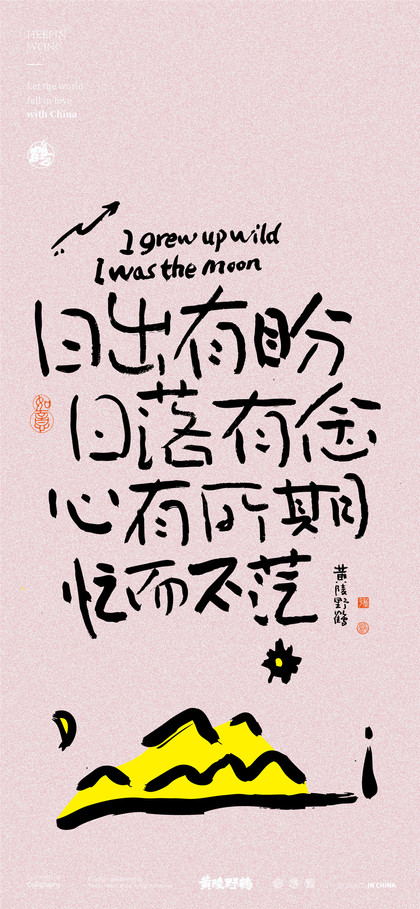 MEEPIN
WONG
Let the world
fall in love
with China
鹤
I grew up wild
I was the moon
日出有盼
日落有念
心有所期
忙而不茫
如意
黄陵野鹤
黄陵野鹤
Calligraphy
IN CHINA